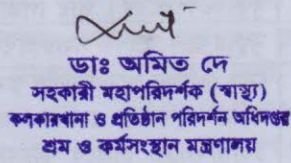 ডাঃ অমিত দে
সহকারী মহাপরিদর্শক (স্বাস্থ্য)
কলকারখানা ও প্রতিষ্ঠান পরিদর্শন অধিদপ্তর
শ্রম ও কর্মসংস্থান মন্ত্রণালয়